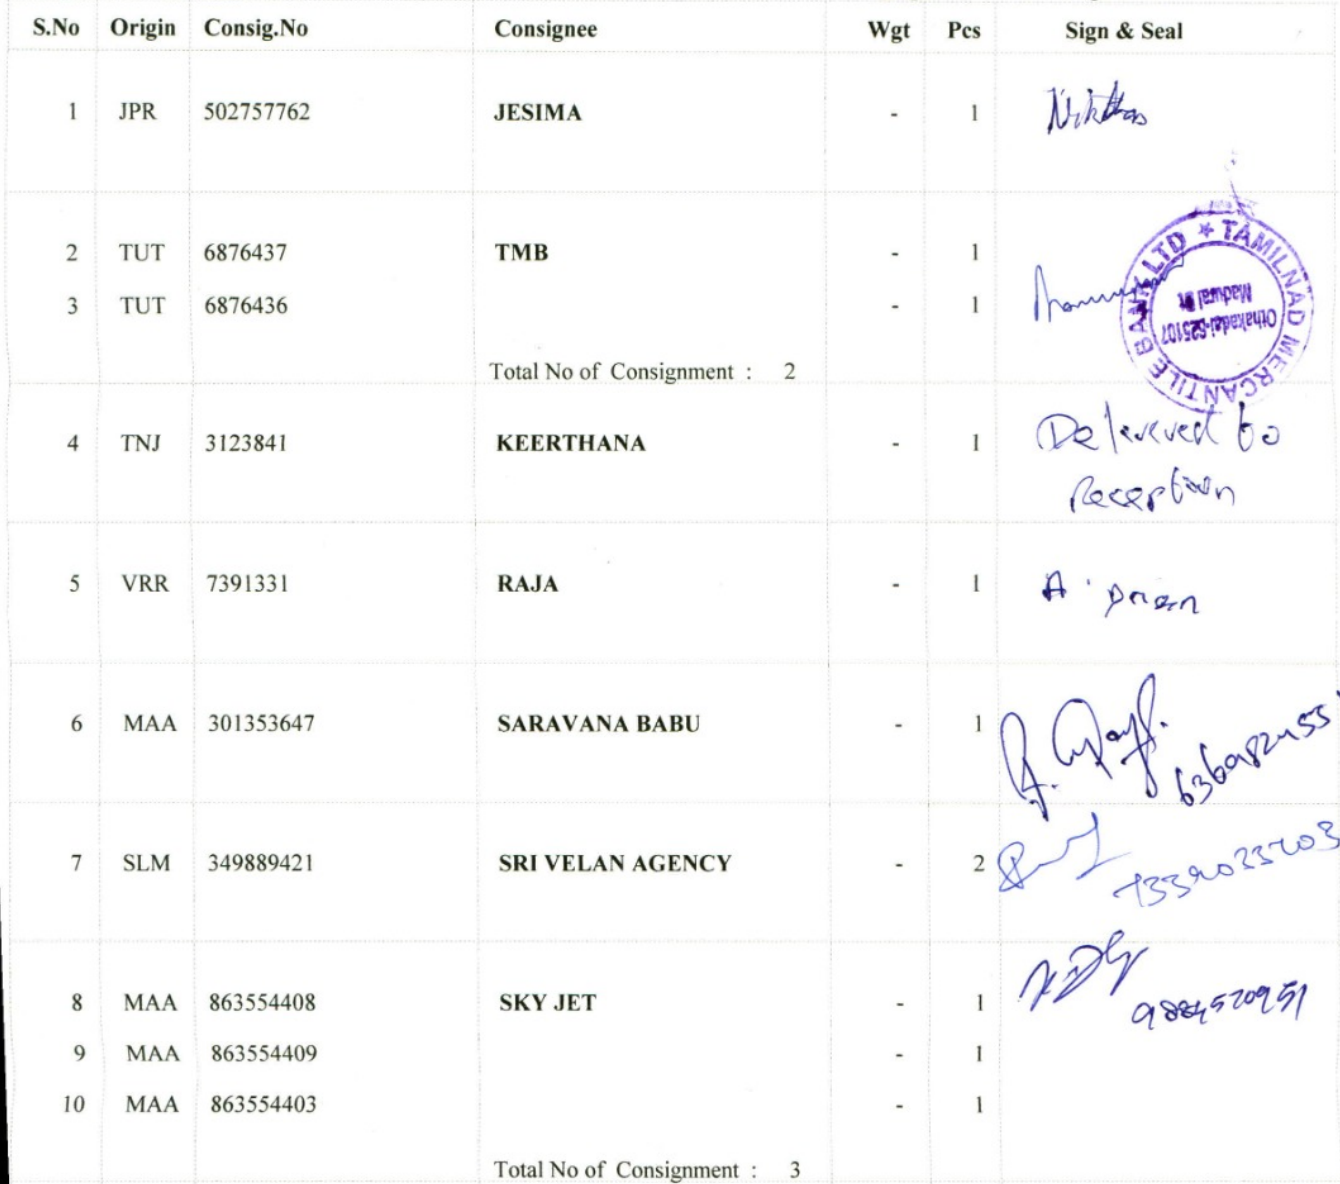 S.No Origin Consig.No Consignee Wgt Pcs Sign & Seal
1 JPR 502757762 JESIMA - 1
2 TUT 6876437 TMB - 1
3 TUT 6876436 - 1
TAMILNAD MERCANTILE BANK LTD
Othakadai-625107
Madurai Dt
Total No of Consignment : 2
4 TNJ 3123841 KEERTHANA - 1 Delevered to
Reception
5 VRR 7391331 RAJA - 1
6 MAA 301353647 SARAVANA BABU - 1
7 SLM 349889421 SRI VELAN AGENCY - 2
8 MAA 863554408 SKY JET - 1
9 MAA 863554409 - 1
10 MAA 863554403 - 1
Total No of Consignment : 3